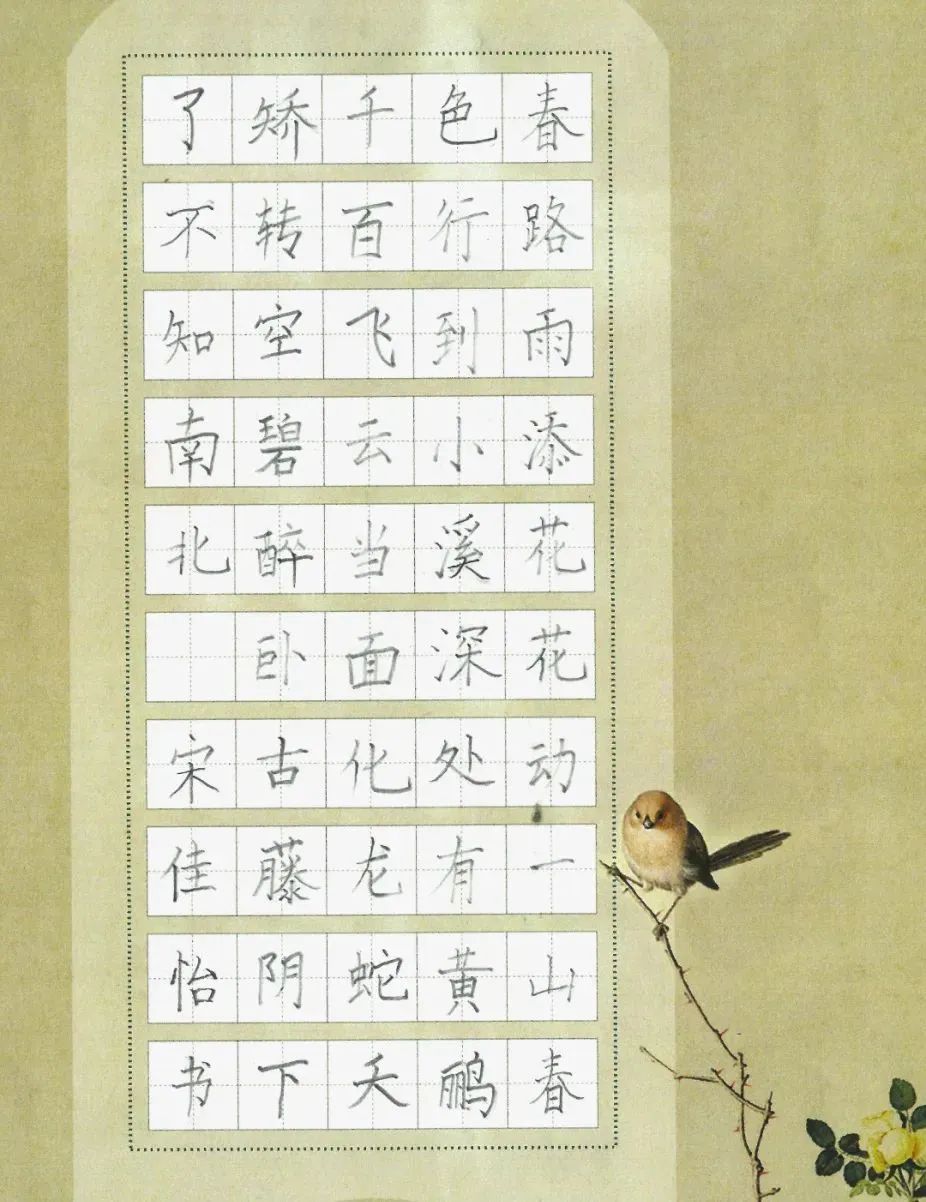 春路雨添花花动一山春
色行到小溪深处有黄鹂
千百飞云当面化龙蛇夭
矫转空碧醉卧古藤阴下
了不知南北 宋佳怡书